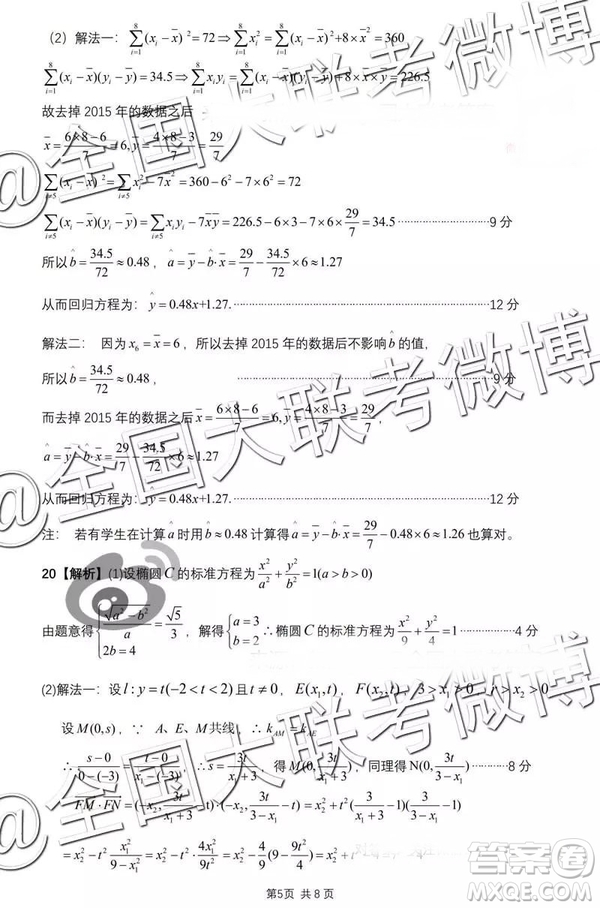 （2）解法一：∑_{i=1}^{8}(x_i-x̄)²=72⇒∑_{i=1}^{8}x_i²=∑_{i=1}^{8}(x_i-x̄)²+8×x̄²=360
∑_{i=1}^{8}(x_i-x̄)(y_i-ȳ)=34.5⇒∑_{i=1}^{8}x_iy_i=∑_{i=1}^{8}(x_i-x̄)(y_i-ȳ)+8×x̄×ȳ=226.5
故去掉 2015 年的数据之后
x̄=(6×8-6)/7=6,ȳ=(4×8-3)/7=29/7
∑_{i≠5}(x_i-x̄)²=∑_{i≠5}x_i²-7x̄²=360-6²-7×6²=72
∑_{i≠5}(x_i-x̄)(y_i-ȳ)=∑_{i≠5}x_iy_i-7x̄ȳ=226.5-6×3-7×6×29/7=34.5 ··················9 分
所以b̂=34.5/72≈0.48，â=ȳ-b̂·x̄=29/7-34.5/72×6≈1.27
从而回归方程为：ŷ=0.48x+1.27. ··················12 分
解法二： 因为x_6=x̄=6，所以去掉 2015 年的数据后不影响b̂的值,
所以b̂=34.5/72≈0.48， ··················9 分
而去掉 2015 年的数据之后x̄=(6×8-6)/7=6,ȳ=(4×8-3)/7=29/7，
â=ȳ-b̂·x̄=29/7-34.5/72×6≈1.27
从而回归方程为：ŷ=0.48x+1.27. ··················12 分
注： 若有学生在计算â时用b̂≈0.48计算得â=ȳ-b̂·x̄=29/7-0.48×6≈1.26也算对。
20【解析】(1)设椭圆C的标准方程为x²/a²+y²/b²=1(a>b>0)
由题意得{√(a²-b²)/a=√5/3, 2b=4，解得{a=3, b=2 ∴椭圆C的标准方程为x²/9+y²/4=1 ··················4 分
(2)解法一：设l:y=t(-2<t<2)且t≠0，E(x_1,t)，F(x_2,t)，3>x_1>0，-3>x_2>0
设M(0,s)，∵ A、E、M共线，∴k_{AM}=k_{AE}
∴(s-0)/(0-(-3))=(t-0)/(x_1-(-3))，∴s=3t/(x_1+3)，得M(0,3t/(x_1+3))，同理得N(0,3t/(3-x_1)) ··········8 分
∴FM·FN=(-x_2,3t/(x_1+3)-t)·(-x_2,3t/(3-x_1)-t)=x_2²+t²(3/(x_1+3)-1)(3/(3-x_1)-1)
=x_2²-t²x_1²/(9-x_1²)=x_2²-t²·
第5页 共 8 页
@全国大联考微博
@全国大联考微博
@全国大联考微博
答案圈
MXQE.COM